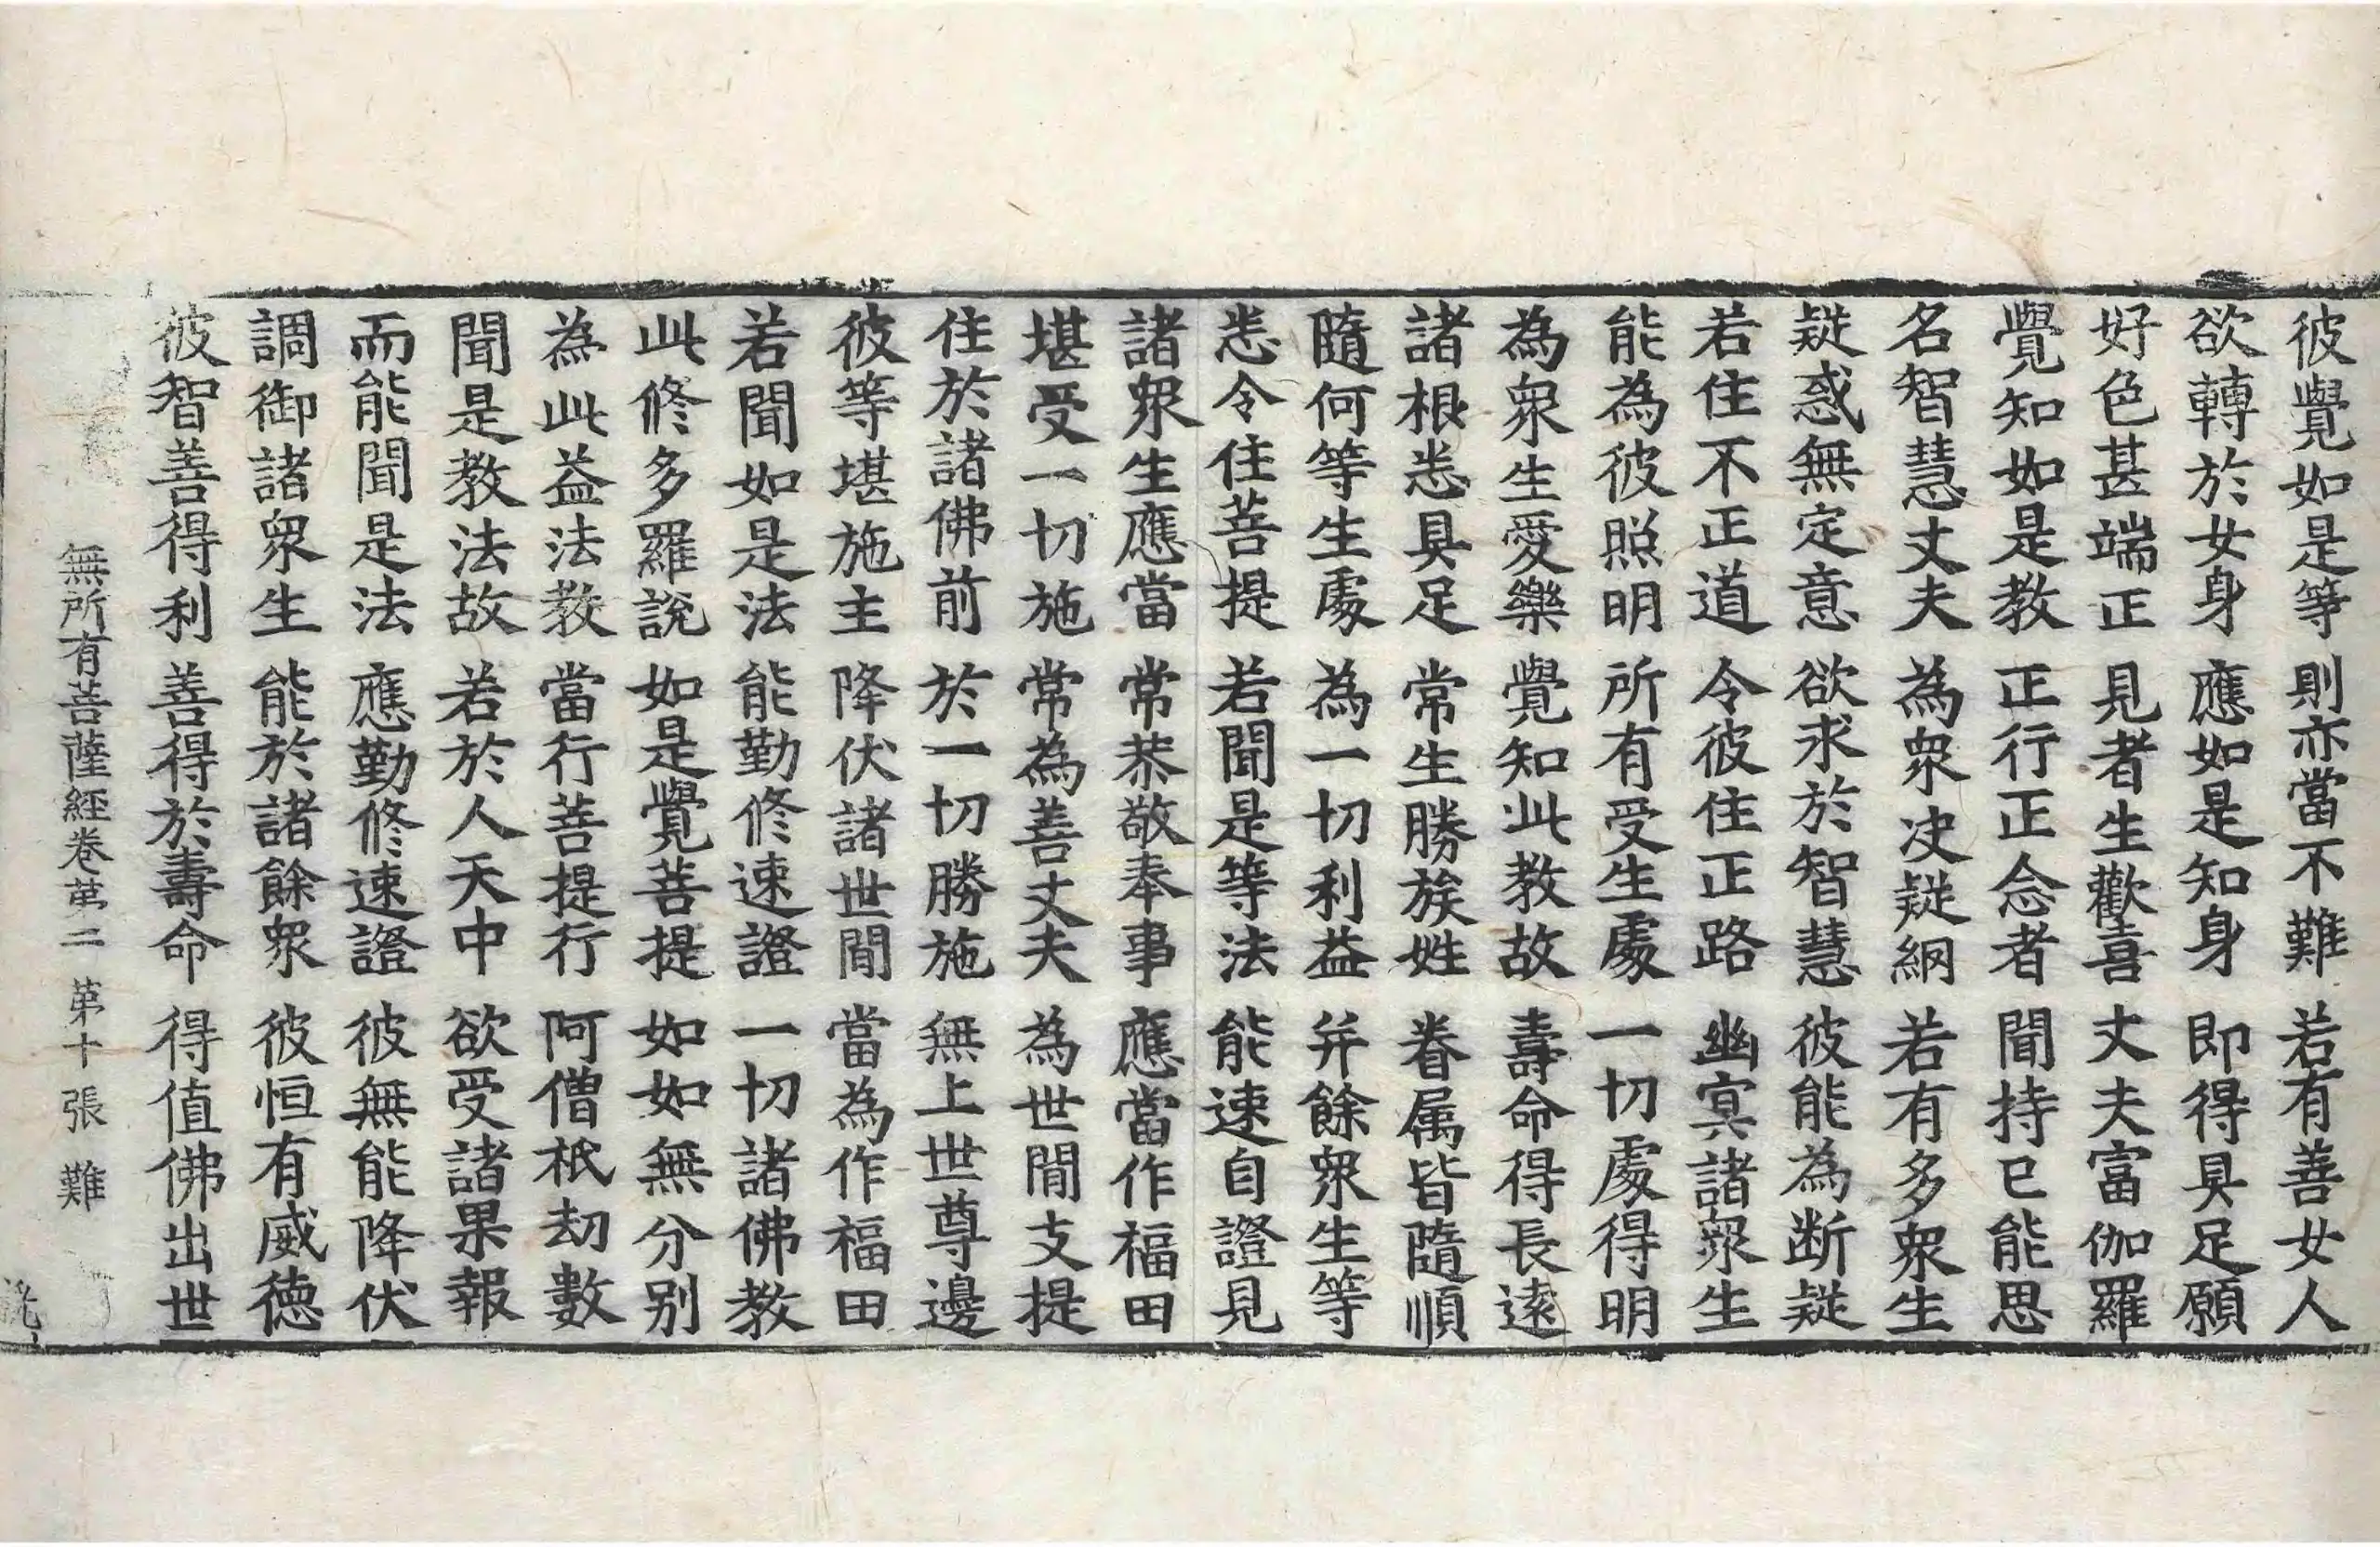 彼覺如是等 則亦當不難 若有善女人
欲轉於女身 應如是知身 即得具足願
好色甚端正 見者生歡喜 丈夫富伽羅
覺知如是教 正行正念者 聞持已能思
名智慧丈夫 為衆决疑網 若有多衆生
疑惑無定意 欲求於智慧 彼能為断疑
若住不正道 令彼住正路 幽冥諸衆生
能為彼照明 所有受生處 一切處得明
為衆生愛樂 覺知此教故 壽命得長遠
諸根悉具足 常生勝族姓 眷属皆隨順
隨何等生處 為一切利益 并餘衆生等
悉令住菩提 若聞是等法 能速自證見
諸衆生應當 常恭敬奉事 應當作福田
堪受一切施 常為善丈夫 為世間支提
住於諸佛前 於一切勝施 無上世尊邊
彼等堪施主 降伏諸世間 當為作福田
若聞如是法 能勤修速證 一切諸佛教
此修多羅說 如是覺菩提 如如無分别
為此益法教 當行菩提行 阿僧祇劫數
聞是教法故 若於人天中 欲受諸果報
而能聞是法 應勤修速證 彼無能降伏
調御諸衆生 能於諸餘衆 彼恒有威徳
彼智善得利 善得於壽命 得值佛出世
無所有菩薩經卷苐二 苐十張 難